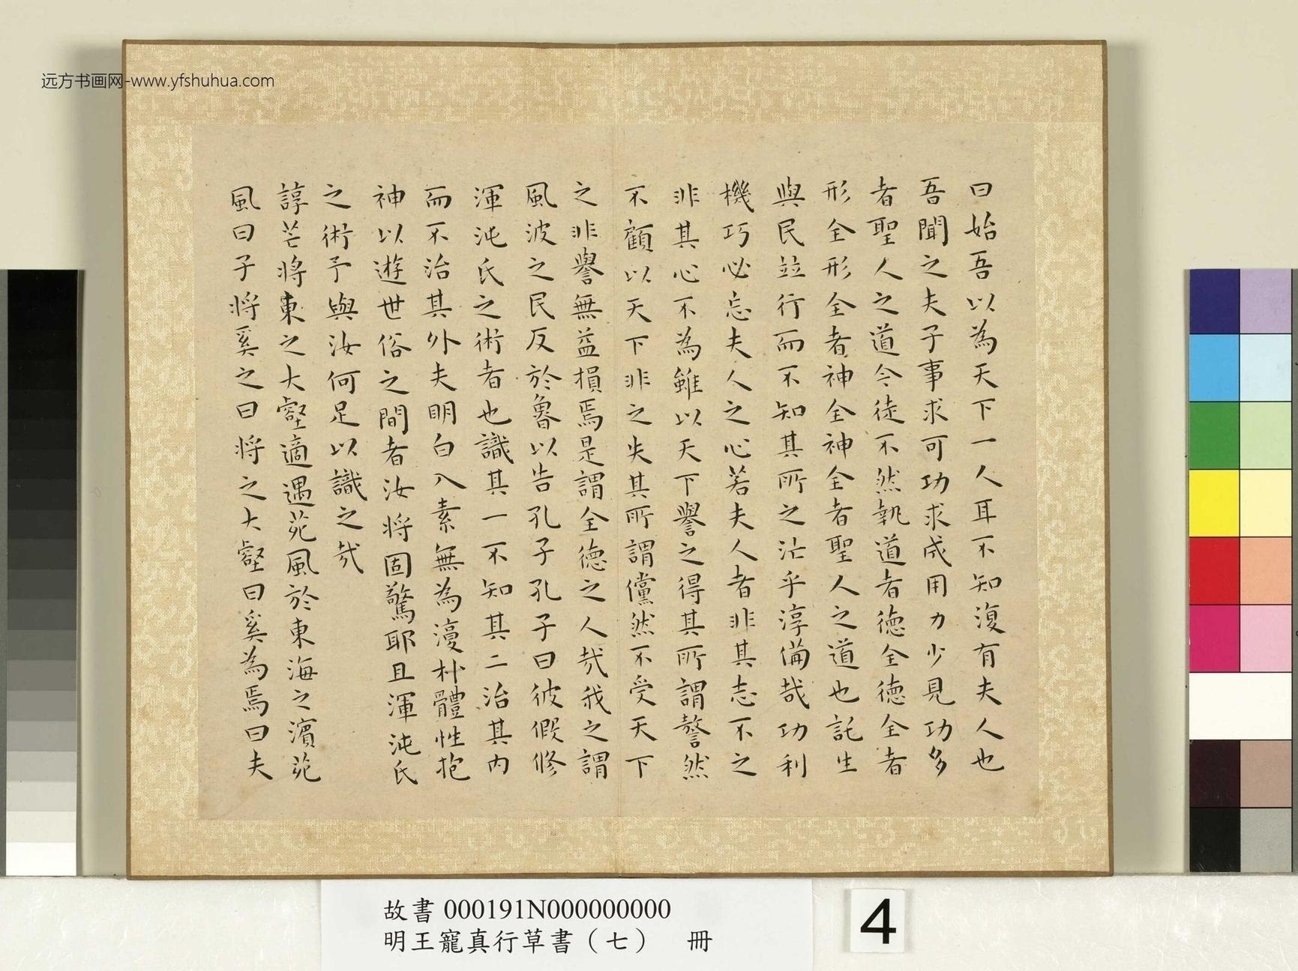 远方书画网-www.yfshuhua.com
曰始吾以為天下一人耳不知復有夫人也
吾聞之夫子事求可功求成用力少見功多
者聖人之道今徒不然執道者德全德全者
形全形全者神全神全者聖人之道也託生
與民竝行而不知其所之汒乎淳備哉功利
機巧必忘夫人之心若夫人者非其志不之
非其心不為雖以天下譽之得其所謂謷然
不顧以天下非之失其所謂儻然不受天下
之非譽無益損焉是謂全德之人哉我之謂
風波之民反於魯以告孔子孔子曰彼假修
渾沌氏之術者也識其一不知其二治其內
而不治其外夫明白入素無為復朴體性抱
神以遊世俗之間者汝將固驚耶且渾沌氏
之術予與汝何足以識之哉
諄芒將東之大壑適遇苑風於東海之濱苑
風曰子將奚之曰將之大壑曰奚為焉曰夫
故書000191N000000000
明王寵真行草書（七） 冊
4